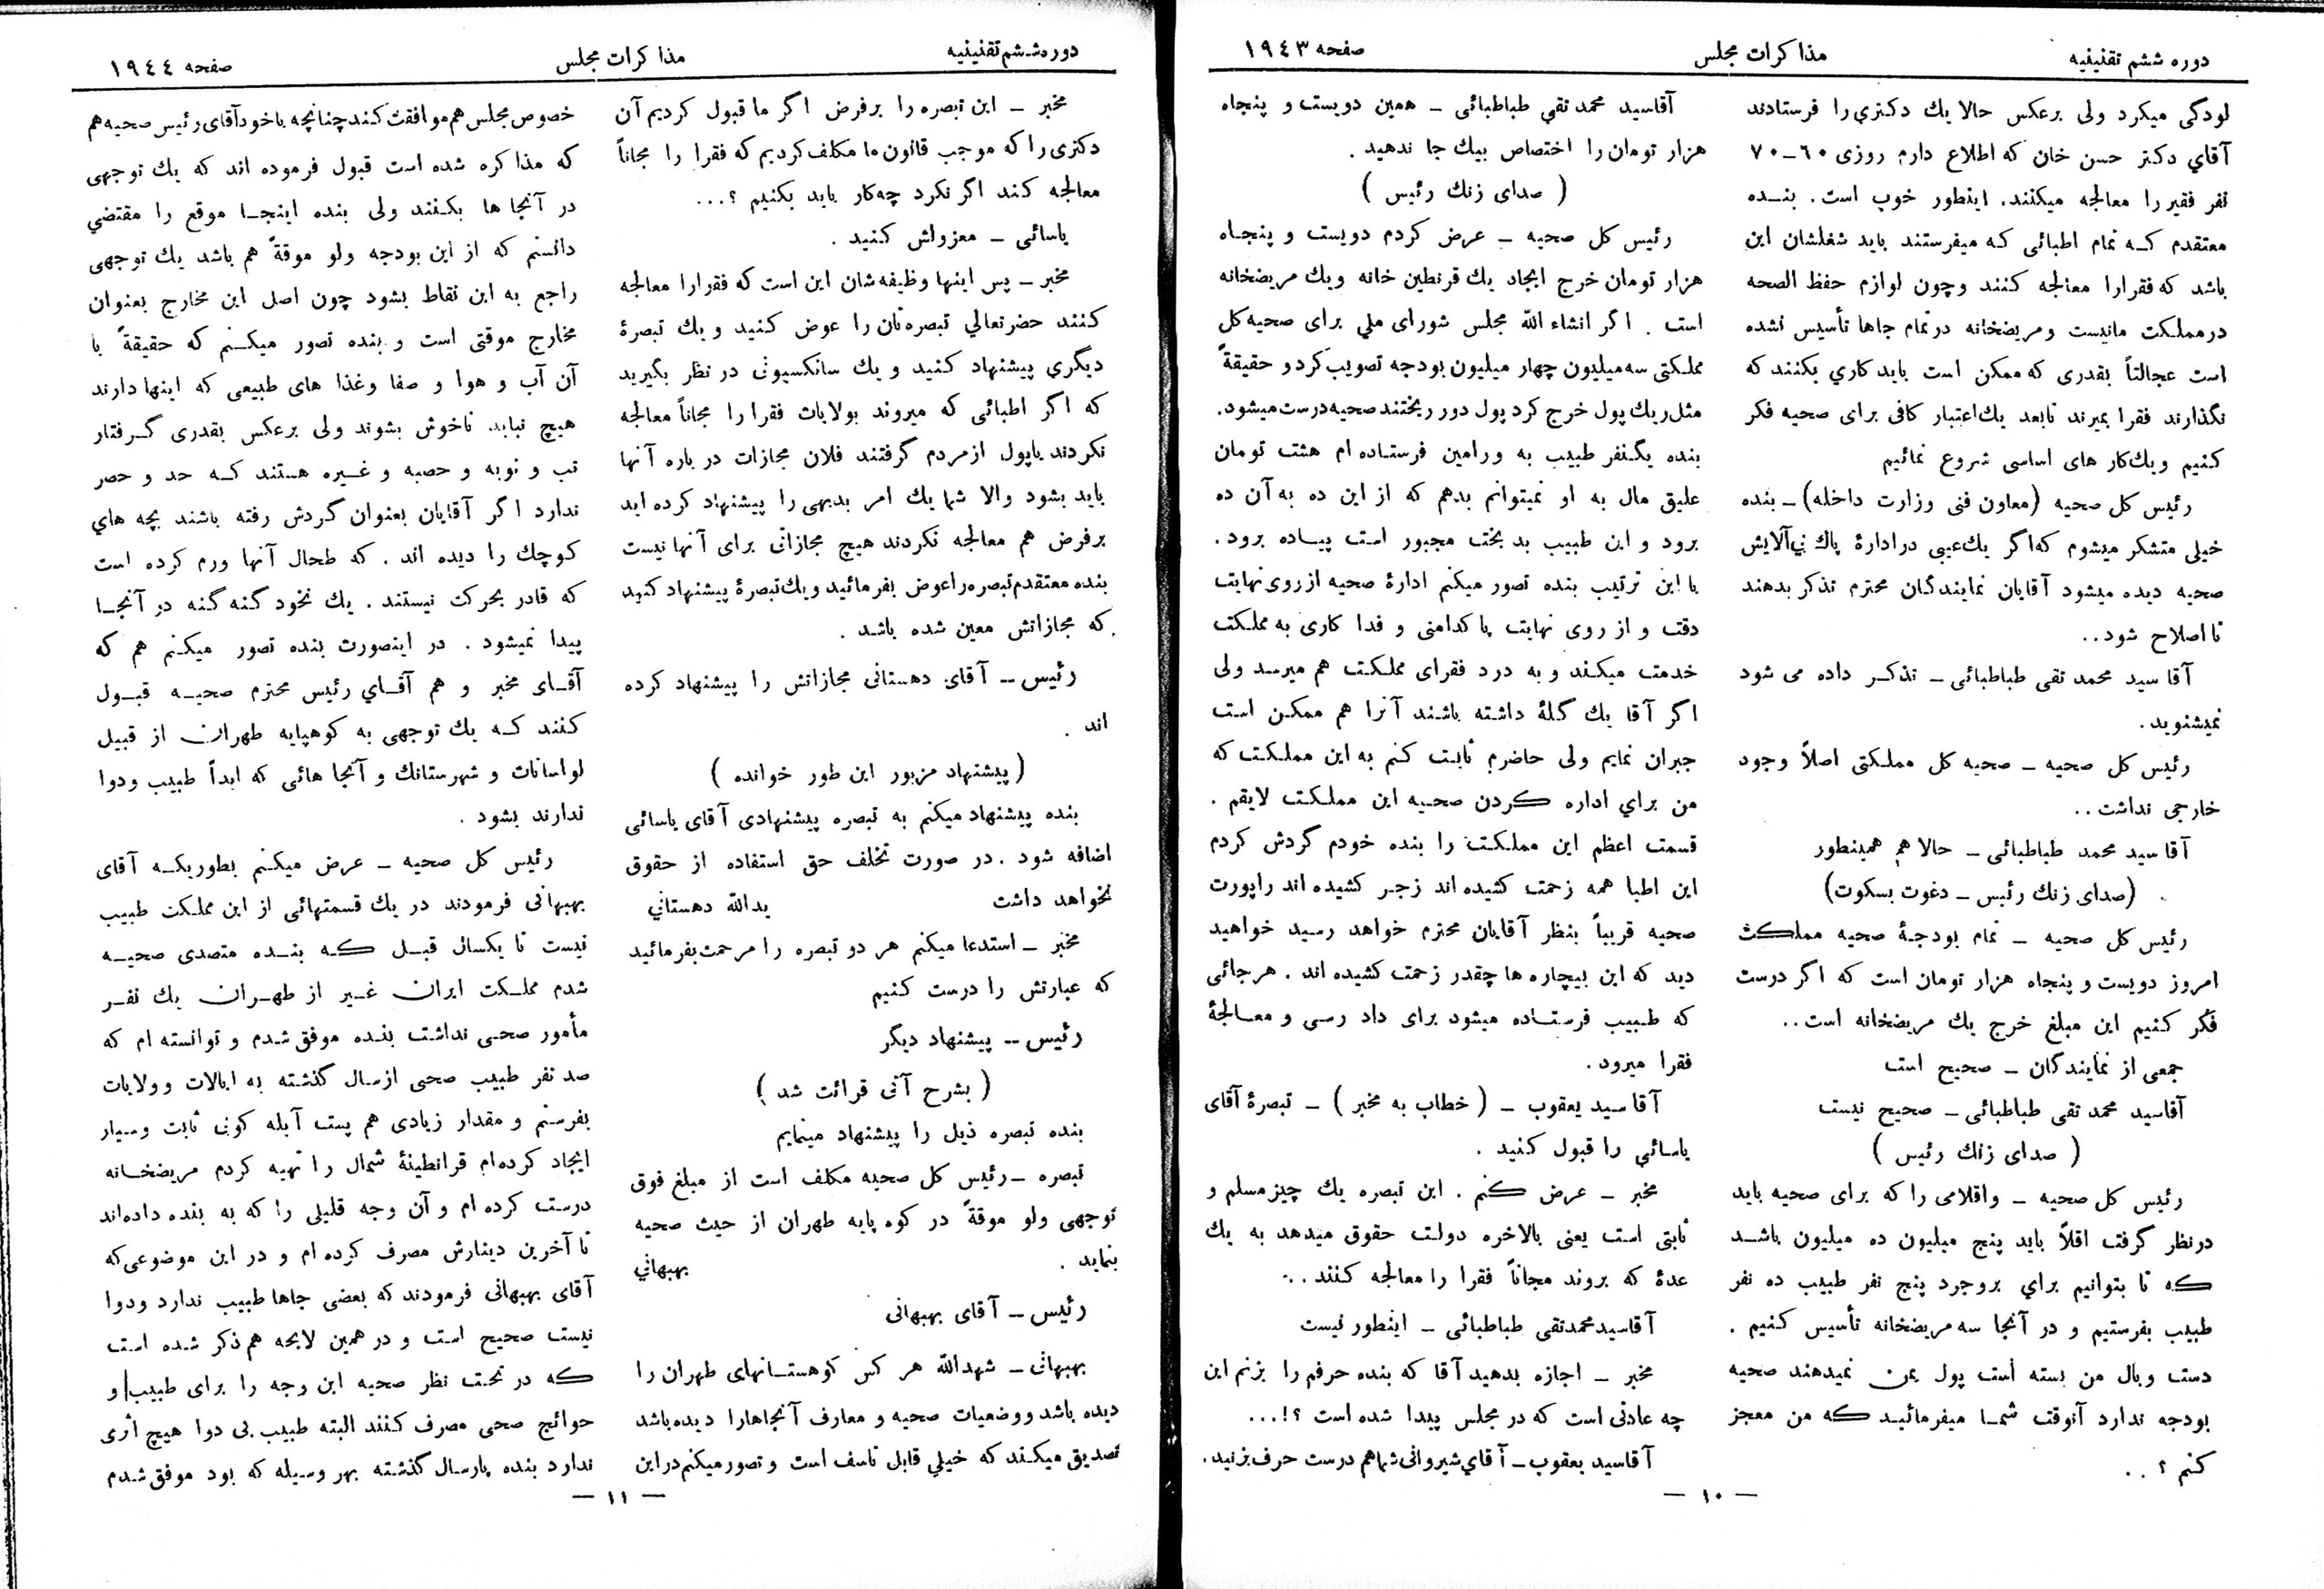 دوره ششم تقنینیه
مذاکرات مجلس
صفحه ۱۹٤۳
لودگی میکرد ولی برعکس حالا یك دکتری را فرستادند
آقای دکتر حسن خان که اطلاع دارم روزی ٦۰-۷۰
نفر فقیر را معالجه میکنند. اینطور خوب است. بنده
معتقدم که تمام اطبائی که میفرستند باید شغلشان این
باشد که فقرا را معالجه کنند و چون لوازم حفظ الصحه
در مملکت ما نیست و مریضخانه در تمام جاها تأسیس نشده
است عجالتاً بقدری که ممکن است باید کاری بکنند که
نگذارند فقرا بمیرند تا بعد یك اعتبار کافی برای صحیه فکر
کنیم و یك کار های اساسی شروع نمائیم
رئیس کل صحیه (معاون فنی وزارت داخله) ـ بنده
خیلی متشکر میشوم که اگر یك عیبی در ادارهٔ پاك بی‌آلایش
صحیه دیده میشود آقایان نمایندگان محترم تذکر بدهند
تا اصلاح شود..
آقا سید محمد تقی طباطبائی ـ تذکر داده می شود
نمیشنوید.
رئیس کل صحیه ـ صحیه کل مملکتی اصلاً وجود
خارجی نداشت..
آقا سید محمد طباطبائی ـ حالا هم همینطور
(صدای زنك رئیس ـ دعوت بسکوت)
رئیس کل صحیه ـ تمام بودجهٔ صحیه مملکت
امروز دویست و پنجاه هزار تومان است که اگر درست
فکر کنیم این مبلغ خرج یك مریضخانه است..
جمعی از نمایندگان ـ صحیح است
آقاسید محمد تقی طباطبائی ـ صحیح نیست
( صدای زنك رئیس )
رئیس کل صحیه ـ واقلامی را که برای صحیه باید
در نظر گرفت اقلاً باید پنج میلیون ده میلیون باشد
که تا بتوانیم برای بروجرد پنج نفر طبیب ده نفر
طبیب بفرستیم و در آنجا سه مریضخانه تأسیس کنیم .
دست وبال من بسته است پول بمن نمیدهند صحیه
بودجه ندارد آنوقت شما میفرمائید که من معجز
کنم ؟ . .
آقاسید محمد تقی طباطبائی ـ همین دویست و پنجاه
هزار تومان را اختصاص بیك جا ندهید .
( صدای زنك رئیس )
رئیس کل صحیه ـ عرض کردم دویست و پنجاه
هزار تومان خرج ایجاد یك قرنطین خانه و یك مریضخانه
است . اگر انشاء الله مجلس شورای ملی برای صحیه کل
مملکتی سه میلیون چهار میلیون بودجه تصویب کرد و حقیقةً
مثل ریك پول خرج کرد پول دور ریختند صحیه درست میشود.
بنده یگنفر طبیب به ورامین فرستاده ام هشت تومان
علیق مال به او نمیتوانم بدهم که از این ده به آن ده
برود و این طبیب بد بخت مجبور است پیاده برود .
با این ترتیب بنده تصور میکنم ادارهٔ صحیه از روی نهایت
دقت و از روی نهایت پاکدامنی و فدا کاری به مملکت
خدمت میکند و به درد فقرای مملکت هم میرسد ولی
اگر آقا یك گلهٔ داشته باشند آنرا هم ممکن است
جبران نمایم ولی حاضرم ثابت کنم به این مملکت که
من برای اداره کردن صحیه این مملکت لایقم .
قسمت اعظم این مملکت را بنده خودم گردش کردم
این اطبا همه زحمت کشیده اند زجر کشیده اند راپورت
صحیه قریباً بنظر آقایان محترم خواهد رسید خواهید
دید که این بیچاره ها چقدر زحمت کشیده اند . هر جائی
که طبیب فرستاده میشود برای داد رسی و معالجهٔ
فقرا میرود .
آقا سید یعقوب ـ ( خطاب به مخبر ) ـ تبصرهٔ آقای
یاسائی را قبول کنید .
مخبر ـ عرض کنم . این تبصره یك چیز مسلم و
ثابتی است یعنی بالاخره دولت حقوق میدهد به یك
عدهٔ که بروند مجاناً فقرا را معالجه کنند..
آقاسید محمد تقی طباطبائی ـ اینطور نیست
مخبر ـ اجازه بدهید آقا که بنده حرفم را بزنم این
چه عادتی است که در مجلس پیدا شده است ؟!...
آقاسید یعقوب ـ آقای شیروانی شما هم درست حرف بزنید.
— ۱۰ —
دوره ششم تقنینیه
مذاکرات مجلس
صفحه ۱۹٤٤
مخبر ـ این تبصره را برفرض اگر ما قبول کردیم آن
دکتری را که موجب قانون ما مکلف کردیم که فقرا را مجاناً
معالجه کند اگر نکرد چه کار باید بکنیم ؟...
یاسائی ـ معزولش کنید .
مخبر ـ پس اینها وظیفه شان این است که فقرا را معالجه
کنند حضرتعالی تبصره تان را عوض کنید و یك تبصرهٔ
دیگری پیشنهاد کنید و یك سانکسیونی در نظر بگیرید
که اگر اطبائی که میروند بولایات فقرا را مجاناً معالجه
نکردند یا پول از مردم گرفتند فلان مجازات در باره آنها
باید بشود والا شما یك امر بدیهی را پیشنهاد کرده اید
برفرض هم معالجه نکردند هیچ مجازاتی برای آنها نیست
بنده معتقدم تبصره را عوض بفرمائید و یك تبصرهٔ پیشنهاد کنید
که مجازاتش معین شده باشد .
رئیس ـ آقای دهستانی مجازاتش را پیشنهاد کرده
اند .
( پیشنهاد مزبور این طور خوانده )
بنده پیشنهاد میکنم به تبصره پیشنهادی آقای یاسائی
اضافه شود . در صورت تخلف حق استفاده از حقوق
نخواهد داشت یدالله دهستانی
مخبر ـ استدعا میکنم هر دو تبصره را مرحمت بفرمائید
که عبارتش را درست کنیم
رئیس ـ پیشنهاد دیگر
( بشرح آتی قرائت شد )
بنده تبصره ذیل را پیشنهاد مینمایم
تبصره ـ رئیس کل صحیه مکلف است از مبلغ فوق
توجهی ولو موقةً در کوه پایه طهران از حیث صحیه
بنماید . بهبهانی
رئیس ـ آقای بهبهانی
بهبهانی ـ شهدالله هر کس کوهستانهای طهران را
دیده باشد و وضعیات صحیه و معارف آنجاها را دیده باشد
تصدیق میکند که خیلی قابل تاسف است و تصور میکنم در این
خصوص مجلس هم موافقت کنند چنانچه با خود آقای رئیس صحیه هم
که مذاکره شده است قبول فرموده اند که یك توجهی
در آنجا ها بکنند ولی بنده اینجا موقع را مقتضی
دانستم که از این بودجه ولو موقةً هم باشد یك توجهی
راجع به این نقاط بشود چون اصل این مخارج بعنوان
مخارج موقتی است و بنده تصور میکنم که حقیقةً با
آن آب و هوا و صفا و غذا های طبیعی که اینها دارند
هیچ نباید ناخوش بشوند ولی برعکس بقدری گرفتار
تب و نوبه و حصبه و غیره هستند که حد و حصر
ندارد اگر آقایان بعنوان گردش رفته باشند بچه های
کوچك را دیده اند . که طحال آنها ورم کرده است
که قادر بحرکت نیستند . یك نخود گنه گنه در آنجا
پیدا نمیشود . در اینصورت بنده تصور میکنم هم که
آقای مخبر و هم آقای رئیس محترم صحیه قبول
کنند که یك توجهی به کوهپایه طهران از قبیل
لواسانات و شهرستانك و آنجا هائی که ابداً طبیب ودوا
ندارند بشود .
رئیس کل صحیه ـ عرض میکنم بطوریکه آقای
بهبهانی فرمودند در یك قسمتهائی از این مملکت طبیب
نیست تا یکسال قبل که بنده متصدی صحیه
شدم مملکت ایران غیر از طهران یك نفر
مأمور صحی نداشت بنده موفق شدم و توانسته ام که
صد نفر طبیب صحی از سال گذشته به ایالات وولایات
بفرستم و مقدار زیادی هم پست آبله کوبی ثابت و سیار
ایجاد کرده ام قرانطینهٔ شمال را تهیه کردم مریضخانه
درست کرده ام و آن وجه قلیلی را که به بنده داده‌اند
تا آخرین دینارش مصرف کرده ام و در این موضوعی که
آقای بهبهانی فرمودند که بعضی جاها طبیب ندارد ودوا
نیست صحیح است و در همین لایحه هم ذکر شده است
که در تحت نظر صحیه این وجه را برای طبیب و
حوائج صحی مصرف کنند البته طبیب بی دوا هیچ اثری
ندارد بنده پارسال گذشته بهر وسیله که بود موفق شدم
— ۱۱ —